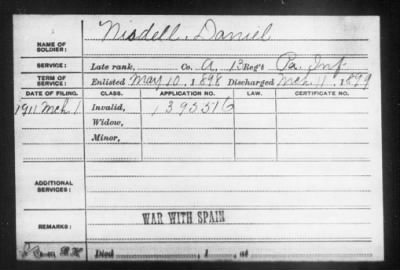 NAME OF SOLDIER: Nisdell, Daniel
SERVICE: Late rank, Co. A, 13 Reg't Pa. Inf.
TERM OF SERVICE: Enlisted May 10, 1898 Discharged Mch 11, 1899
DATE OF FILING. CLASS. APPLICATION NO. LAW. CERTIFICATE NO.
1911 Mch 1 Invalid, 1395516
Widow,
Minor,
ADDITIONAL SERVICES:
REMARKS: WAR WITH SPAIN
Died , 1 , at